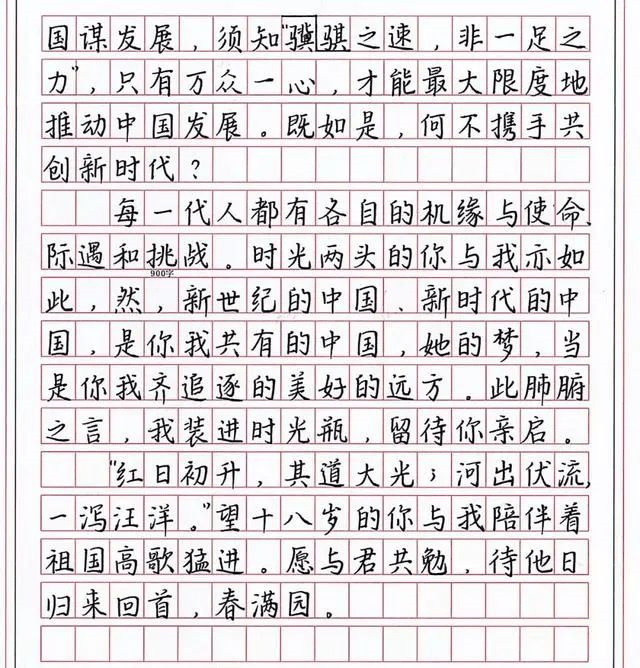 国谋发展，须知"骥骐之速，非一足之
力"，只有万众一心，才能最大限度地
推动中国发展。既如是，何不携手共
创新时代？
每一代人都有各自的机缘与使命、
际遇和挑战。时光两头的你与我亦如
900字
此，然，新世纪的中国、新时代的中
国，是你我共有的中国，她的梦，当
是你我齐追逐的美好的远方。此肺腑
之言，我装进时光瓶，留待你亲启。
"红日初升，其道大光；河出伏流，
一泻汪洋。"望十八岁的你与我陪伴着
祖国高歌猛进。愿与君共勉，待他日
归来回首，春满园。